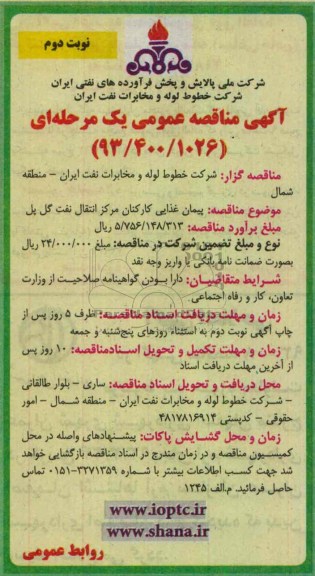 نوبت دوم
شرکت ملی پالایش و پخش فرآورده های نفتی ایران
شرکت خطوط لوله و مخابرات نفت ایران
آگهی مناقصه عمومی یک مرحله‌ای
(۹۳/۴۰۰/۱۰۲۶)
مناقصه گزار: شرکت خطوط لوله و مخابرات نفت ایران - منطقه
شمال
موضوع مناقصه: پیمان غذایی کارکنان مرکز انتقال نفت گل پل
مبلغ برآورد مناقصه: ۵/۷۵۶/۱۴۸/۳۱۳ ریال
نوع و مبلغ تضمین شرکت در مناقصه: مبلغ ۲۴/۰۰۰/۰۰۰ ریال
بصورت ضمانت نامه بانکی یا واریز وجه نقد
شرایط متقاضیان: دارا بودن گواهینامه صلاحیت از وزارت
تعاون، کار و رفاه اجتماعی
زمان و مهلت دریافت اسناد مناقصه: ظرف ۵ روز پس از
چاپ آگهی نوبت دوم به استثناء روزهای پنج‌شنبه و جمعه
زمان و مهلت تکمیل و تحویل اسنادمناقصه: ۱۰ روز پس
از آخرین مهلت دریافت اسناد
محل دریافت و تحویل اسناد مناقصه: ساری - بلوار طالقانی
- شرکت خطوط لوله و مخابرات نفت ایران - منطقه شمال - امور
حقوقی - کدپستی ۴۸۱۷۸۱۶۹۱۴
زمان و محل گشایش پاکات: پیشنهادهای واصله در محل
کمیسیون مناقصه و در زمان مندرج در اسناد مناقصه بازگشایی خواهد
شد جهت کسب اطلاعات بیشتر با شماره ۳۲۷۱۳۵۹-۰۱۵۱ تماس
حاصل فرمائید. م.الف ۱۲۴۵
www.ioptc.ir
www.shana.ir
روابط عمومی